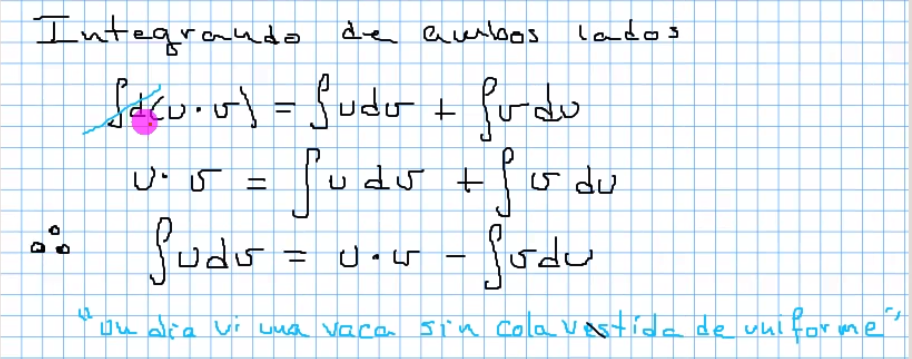 Integrando de ambos lados
∫d(u·v) = ∫udv + ∫vdu
u·v = ∫u dv + ∫v du
∴ ∫udv = u·v - ∫vdu
"Un dia vi una vaca sin cola vestida de uniforme"